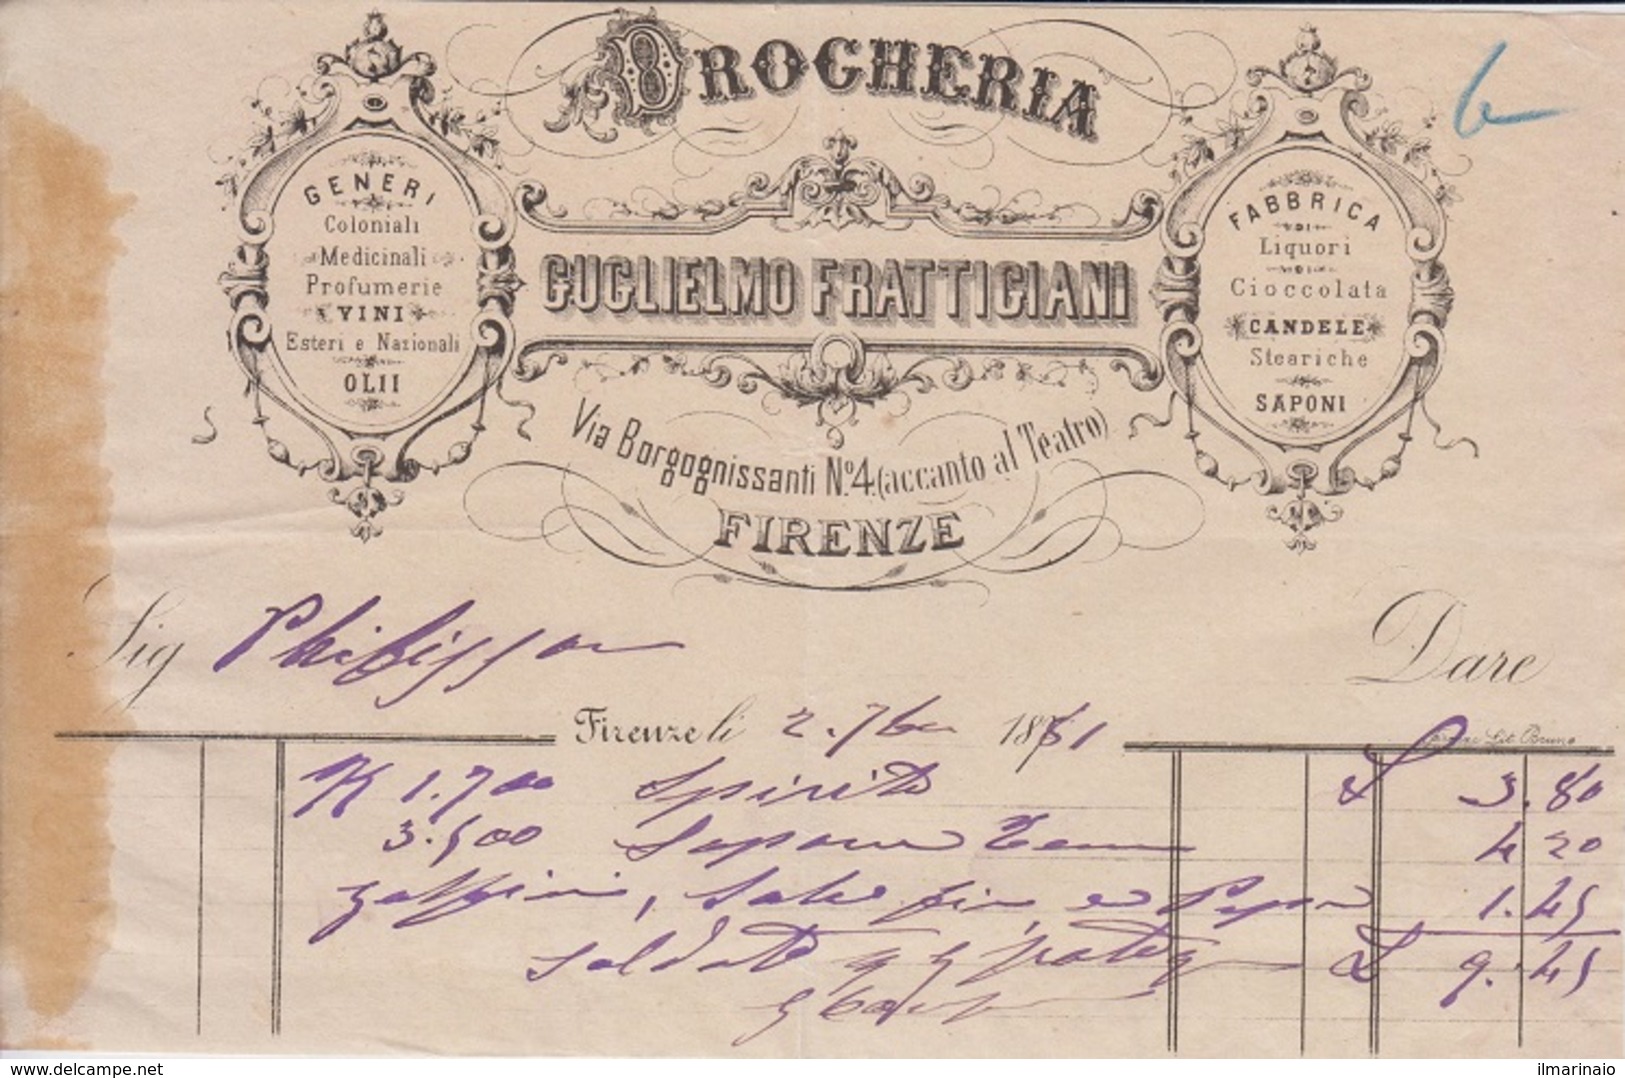 DROGHERIA
GUGLIELMO FRATTIGIANI
Via Borgognissanti No. 4. (accanto al Teatro)
FIRENZE
GENERI
Coloniali
Medicinali
Profumerie
VINI
Esteri e Nazionali
OLII
FABBRICA
DI
Liquori
DI
Cioccolata
CANDELE
Steariche
SAPONI
Sig Philipson
Dare
Firenze li 2. 7bre 1881
Lit. Bruno
K 1.700 Spirito £ 3.80
3.500 Sapone 4 20
Zolfini, Sale fine e Pepe 1.45
Saldato £ 9.45
delcampe.net
ilmarinaio